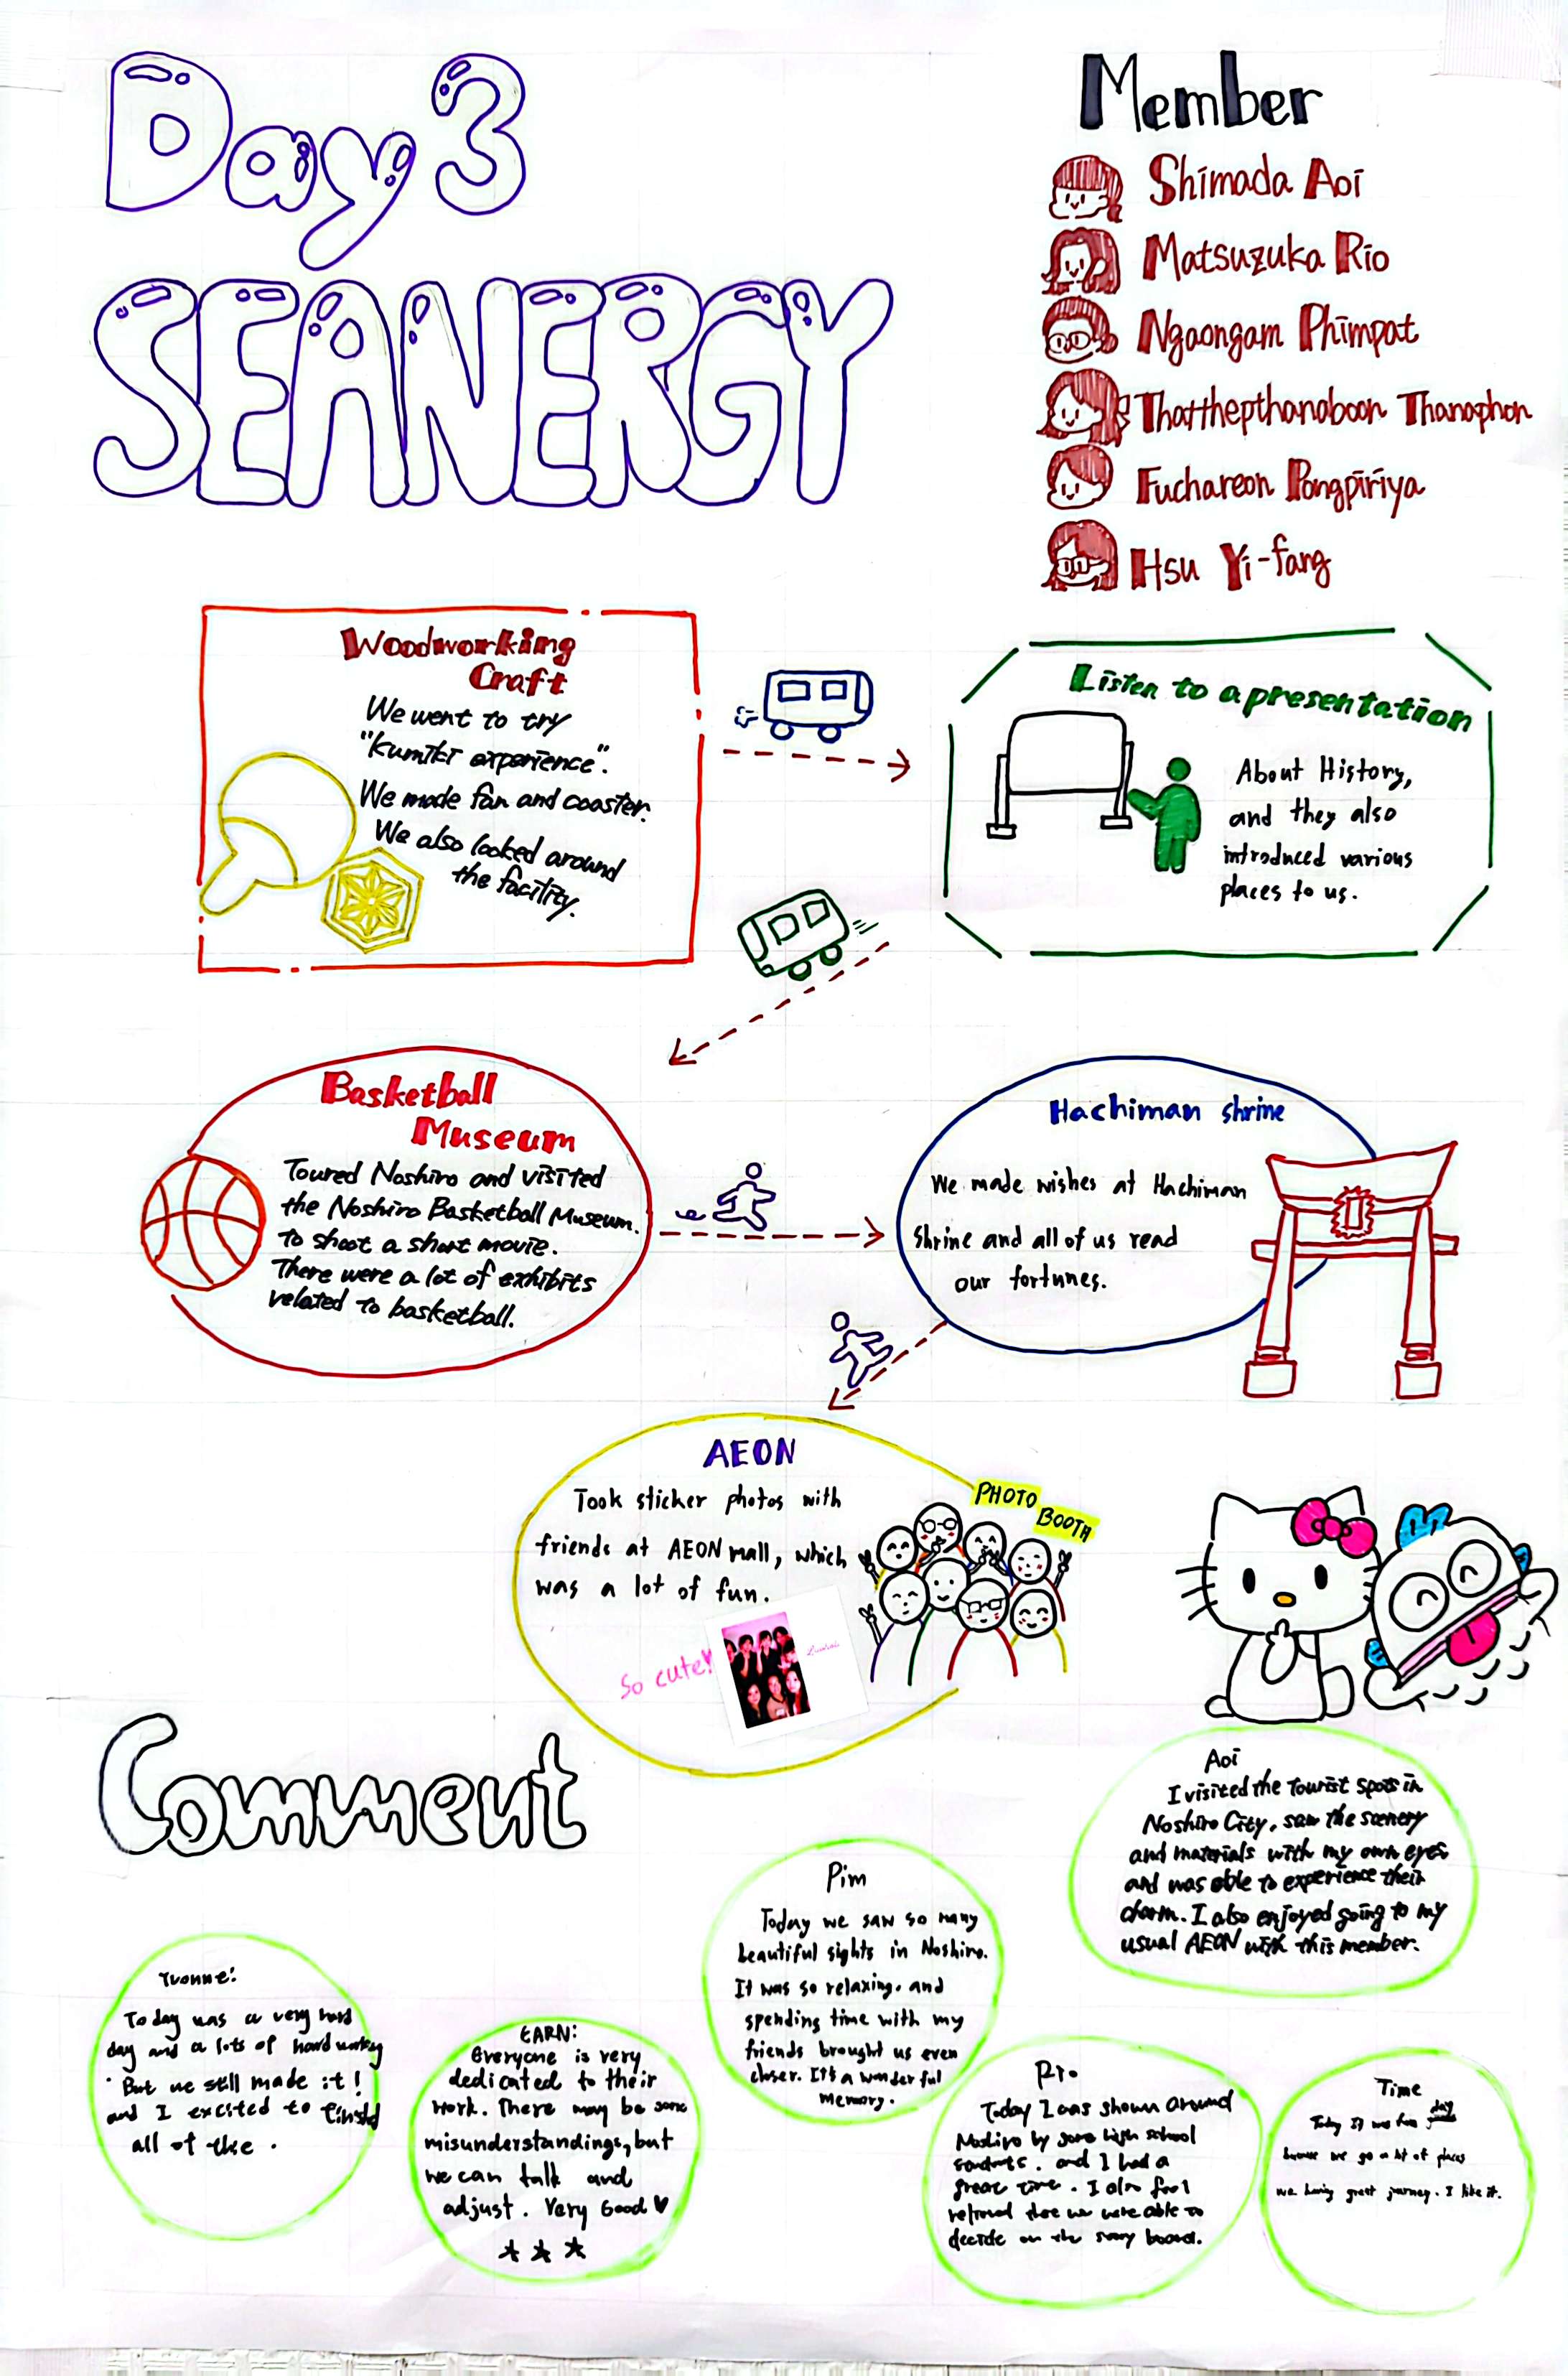 Day 3
SEANERGY
Member
Shimada Aoi
Matsuzuka Rio
Ngaongam Phimpat
Thatthepthanaboon Thanaphon
Fuchareon Pongpiriya
Hsu Yi-fang
Woodworking
Craft
We went to try
"Kumiki experience".
We made fan and coaster.
We also looked around
the facility.
Listen to a presentation
About History,
and they also
introduced various
places to us.
Basketball
Museum
Toured Noshiro and visited
the Noshiro Basketball Museum.
to shoot a short movie.
There were a lot of exhibits
related to basketball.
Hachiman shrine
We made wishes at Hachiman
Shrine and all of us read
our fortunes.
AEON
Took sticker photos with
friends at AEON mall, which
was a lot of fun.
PHOTO
BOOTH
So cute!
Comment
Aoi
I visited the tourist spots in
Noshiro City, saw the scenery
and materials with my own eyes
and was able to experience their
charm. I also enjoyed going to my
usual AEON with this member.
Pim
Today we saw so many
beautiful sights in Noshiro.
It was so relaxing, and
spending time with my
friends brought us even
closer. It's a wonderful
memory.
Yvonne:
Today was a very hard
day and a lots of hard working
But we still made it!
and I excited to
all of the .
EARN:
Everyone is very
dedicated to their
work. There may be some
misunderstandings, but
we can talk and
adjust. Very Good ♥
Rio
Today I was shown around
Noshiro by some high school
students. and I had a
great time. I also feel
relieved that we were able to
decide on the story board.
Time
Today is was fun day
because we go a lot of places
we having great journey. I like it.